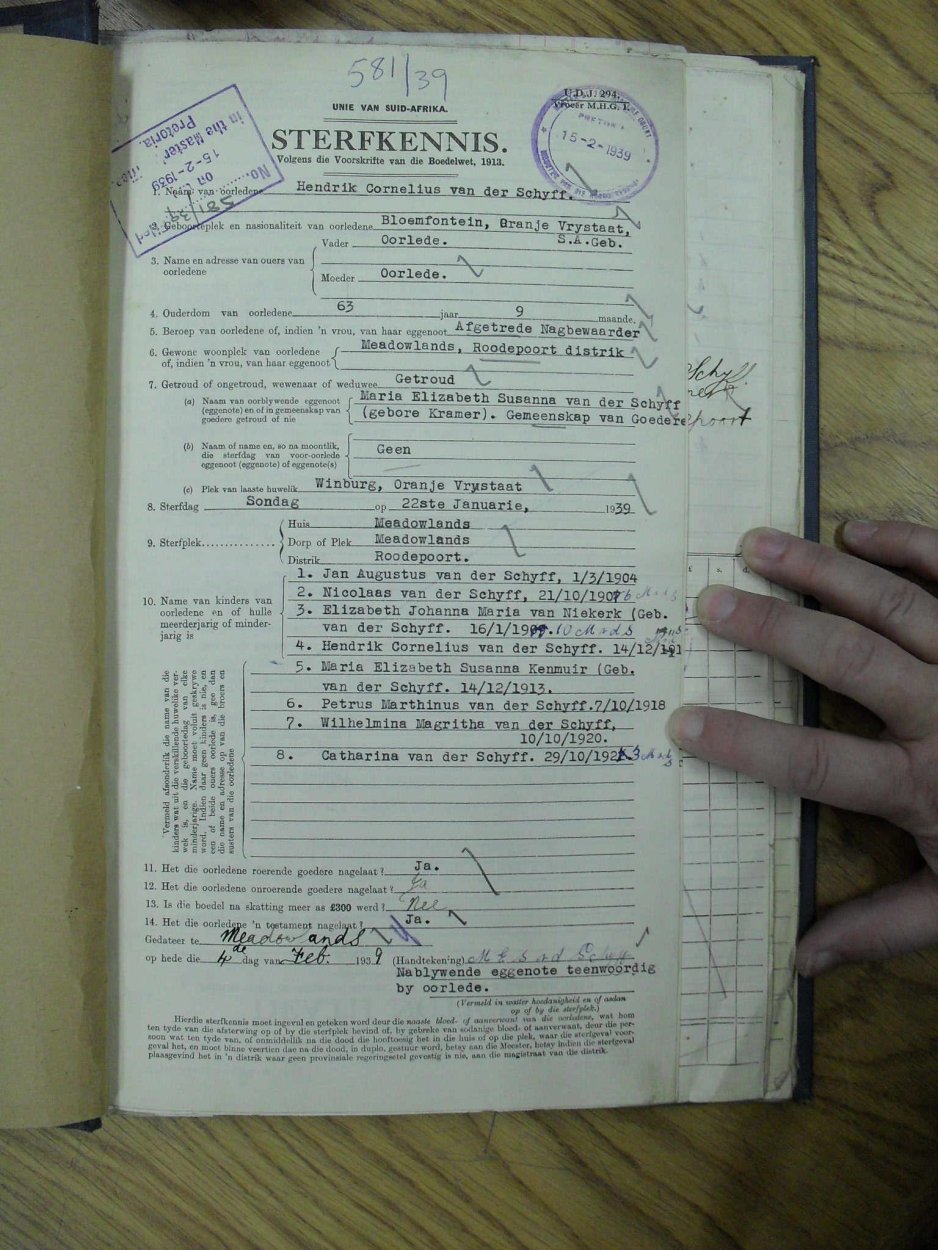 581/39
UNIE VAN SUID-AFRIKA.
U.D.J. 294.
(Vroeër M.H.G. 1.
STERFKENNIS.
Volgens die Voorskrifte van die Boedelwet, 1913.
PRETORIA
15-2-1939
No. 581/39
on 15-2-1939
in the Master
Pretoria.
1. Naam van oorledene Hendrik Cornelius van der Schyff.
2. Geboorteplek en nasionaliteit van oorledene Bloemfontein, Oranje Vrystaat,
S.A.Geb.
3. Name en adresse van ouers van oorledene
Vader Oorlede.
Moeder Oorlede.
4. Ouderdom van oorledene 63 jaar 9 maande.
5. Beroep van oorledene of, indien 'n vrou, van haar eggenoot Afgetrede Nagbewaarder
6. Gewone woonplek van oorledene of, indien 'n vrou, van haar eggenoot Meadowlands, Roodepoort distrik
7. Getroud of ongetroud, wewenaar of weduwee Getroud
(a) Naam van oorblywende eggenoot (eggenote) en of in gemeenskap van goedere getroud of nie
Maria Elizabeth Susanna van der Schyff
(gebore Kramer). Gemeenskap van Goedere
(b) Naam of name en, so na moontlik, die sterfdag van voor-oorlede eggenoot (eggenote) of eggenote(s)
Geen
(c) Plek van laaste huwelik Winburg, Oranje Vrystaat
8. Sterfdag Sondag op 22ste Januarie, 1939
9. Sterfplek
Huis Meadowlands
Dorp of Plek Meadowlands
Distrik Roodepoort.
10. Name van kinders van oorledene en of hulle meerderjarig of minderjarig is
1. Jan Augustus van der Schyff, 1/3/1904
2. Nicolaas van der Schyff, 21/10/190
3. Elizabeth Johanna Maria van Niekerk (Geb.
van der Schyff. 16/1/19
4. Hendrik Cornelius van der Schyff. 14/12/191
5. Maria Elizabeth Susanna Kenmuir (Geb.
van der Schyff. 14/12/1913.
6. Petrus Marthinus van der Schyff.7/10/1918
7. Wilhelmina Magritha van der Schyff,
10/10/1920.
8. Catharina van der Schyff. 29/10/192
Vermeld afsonderlik die name van die
kinders wat uit die verskillende huwelike ver-
wek is, en die geboortedag van elke
minderjarige. Name moet voluit geskrywe
word. Indien daar geen kinders is nie, en
een of beide ouers oorlede is, gee dan
die name en adresse op van die broers en
susters van die oorledene
11. Het die oorledene roerende goedere nagelaat? Ja.
12. Het die oorledene onroerende goedere nagelaat? Ja
13. Is die boedel na skatting meer as £300 werd? Nee
14. Het die oorledene 'n testament nagelaat? Ja.
Gedateer te Meadowlands
op hede die 4de dag van Feb. 1939 (Handtekening) M E S v d Schyff
Nablywende eggenote teenwoordig
by oorlede.
(Vermeld in watter hoedanigheid en of asdan
op of by die sterfplek.)
Hierdie sterfkennis moet ingevul en geteken word deur die naaste bloed- of aanverwant van die oorledene, wat hom
ten tyde van die afsterwing op of by die sterfplek bevind of, by gebreke van sodanige bloed- of aanverwant, deur die per-
soon wat ten tyde van, of onmiddellik na die dood die hooftoesig het in die huis of op die plek, waar die sterfgeval voor-
geval het, en moet binne veertien dae na die dood, in duplo, gestuur word, hetsy aan die Meester, hetsy indien die sterfgeval
plaasgevind het in 'n distrik waar geen provinsiale regeringsetel gevestig is nie, aan die magistraat van die distrik.
Schyff
poort
£ s. d.